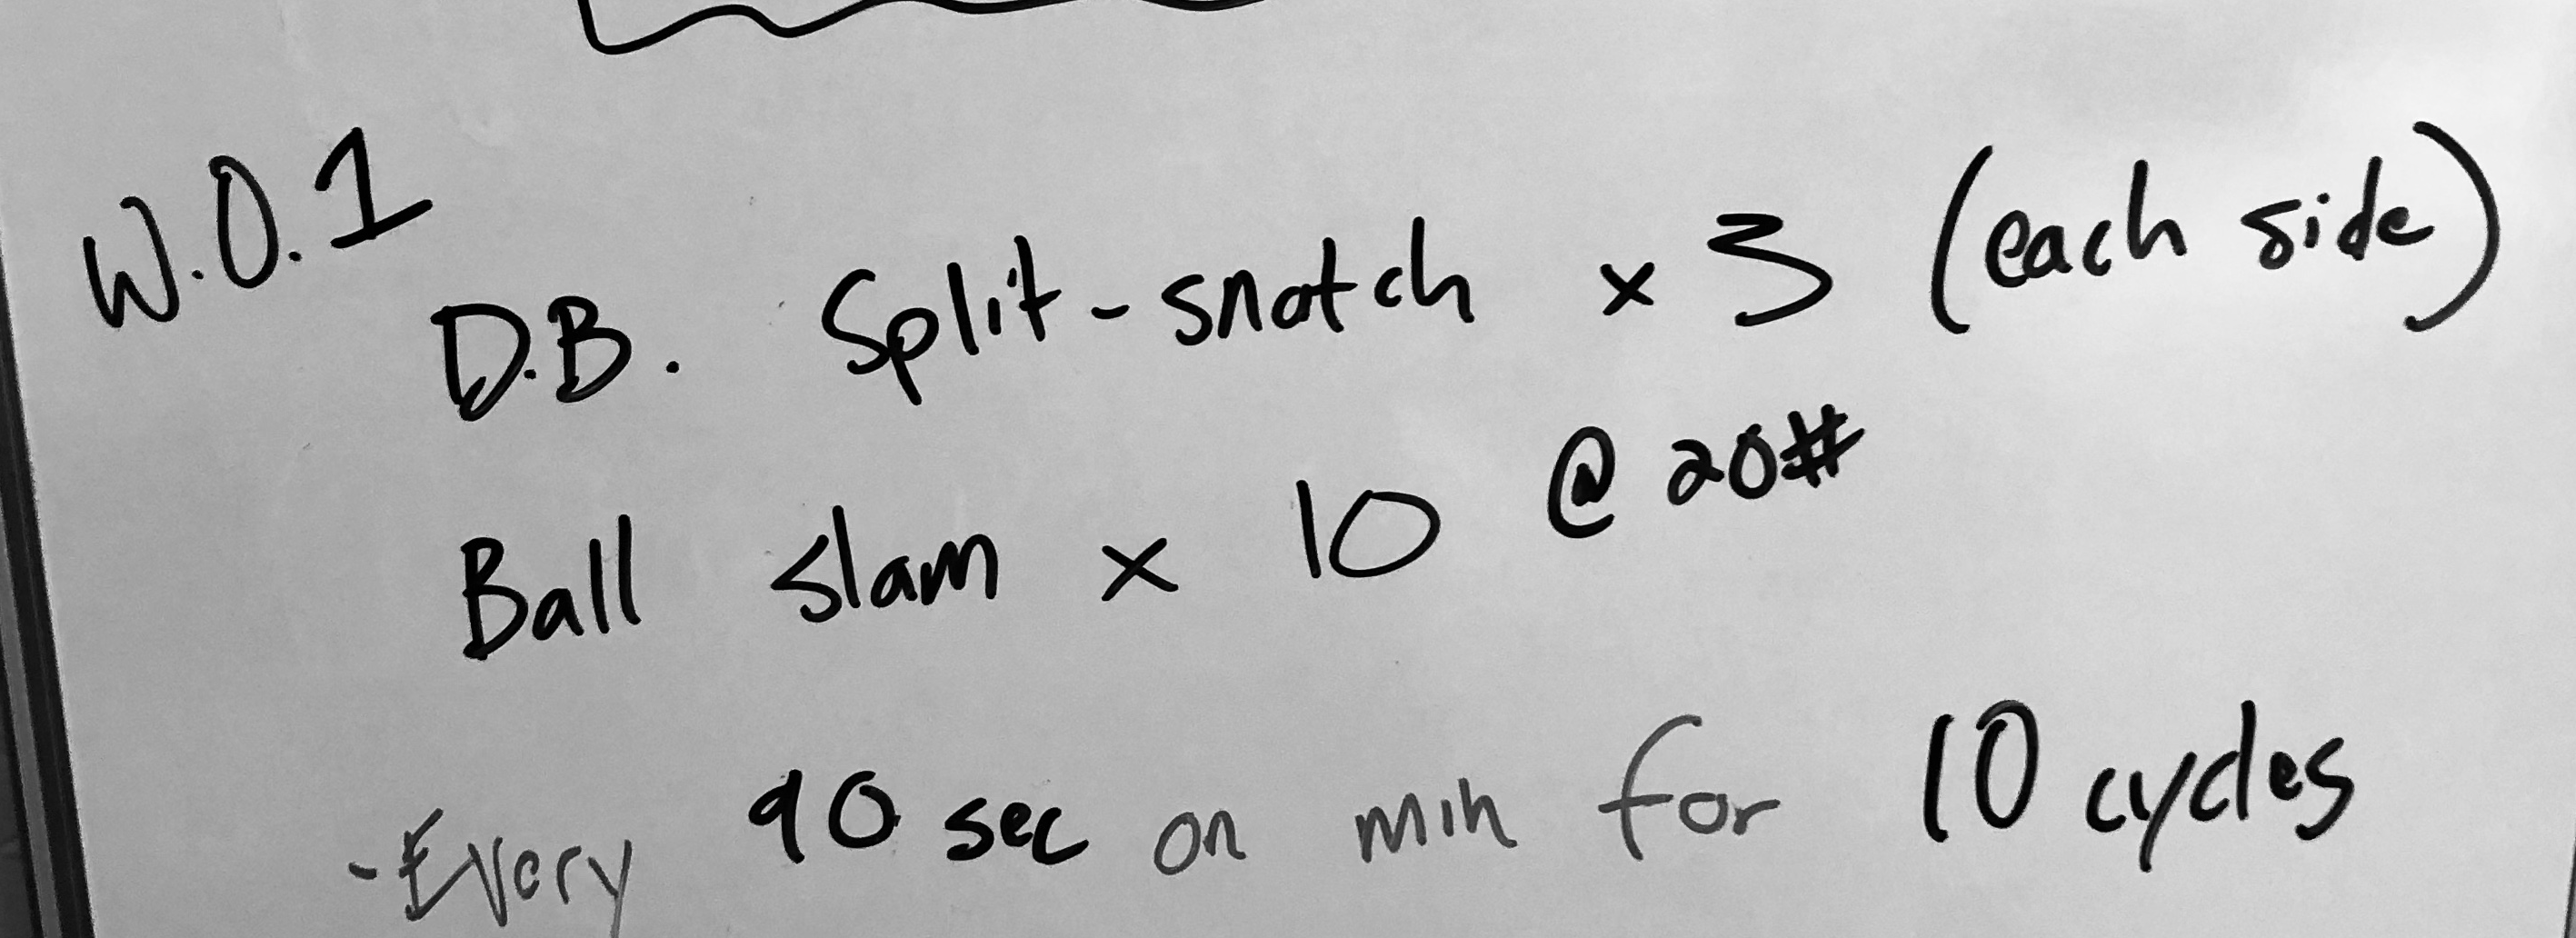 W.O.1
D.B. Split-snatch x 3 (each side)
Ball slam x 10 @ 20#
-Every 90 sec on min for 10 cycles